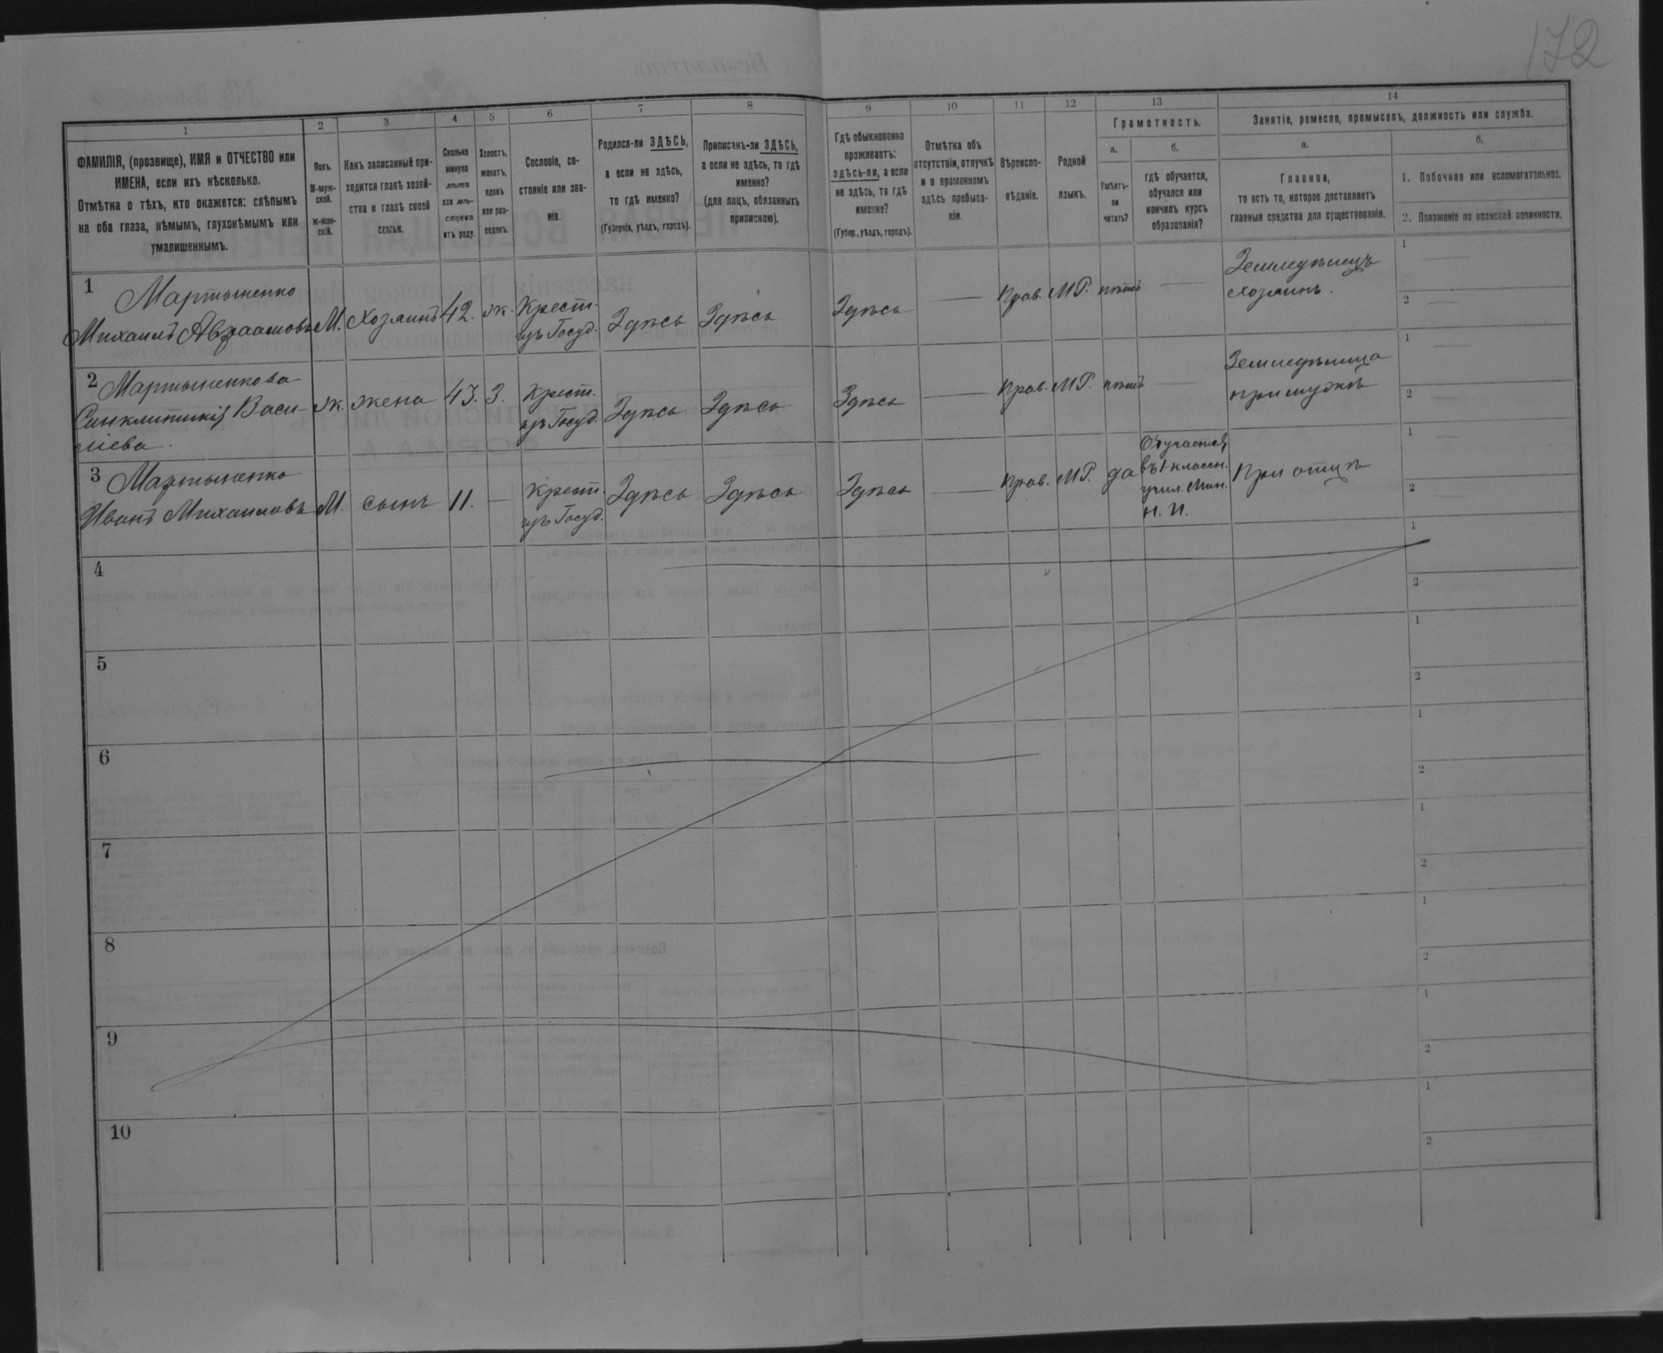 172
1
2
3
4
5
6
7
8
9
10
11
12
13
14
ФАМИЛІЯ, (прозвище), ИМЯ и ОТЧЕСТВО или
ИМЕНА, если ихъ нѣсколько.
Отмѣтка о тѣхъ, кто окажется: слѣпымъ
на оба глаза, нѣмымъ, глухонѣмымъ или
умалишеннымъ.
Полъ.
М-муж-
ской.
Ж-жен-
скій.
Какъ записанный при-
ходится главѣ хозяй-
ства и главѣ своей
семьи.
Сколько
минуло
лѣтъ
или мѣ-
сяцевъ
отъ роду.
Холостъ,
женатъ,
вдовъ
или раз-
веденъ.
Сословіе, со-
стояніе или зва-
ніе.
Родился-ли ЗДѢСЬ,
а если не здѣсь,
то гдѣ именно?
(Губернія, уѣздъ, городъ).
Приписанъ-ли ЗДѢСЬ,
а если не здѣсь, то гдѣ
именно?
(для лицъ, обязанныхъ
припискою).
Гдѣ обыкновенно
проживаетъ:
здѣсь-ли, а если
не здѣсь, то гдѣ
именно?
(Губер., уѣздъ, городъ).
Отмѣтка объ
отсутствіи, отлучкѣ
и о временномъ
здѣсь пребыва-
ніи.
Вѣроиспо-
вѣданіе.
Родной
языкъ.
Грамотность.
а.
Умѣетъ-
ли
читать?
б.
гдѣ обучается,
обучался или
кончилъ курсъ
образованія?
Занятіе, ремесло, промыселъ, должность или служба.
а.
Главное,
то есть то, которое доставляетъ
главныя средства для существованія.
б.
1. Побочное или вспомогательное.
2. Положеніе по воинской повинности.
1
Мартыненко
Михаилъ Авраамовъ
М.
хозяинъ
42.
ж.
Крест.
изъ Госуд.
Здѣсь
Здѣсь
Здѣсь
Прав.
МР.
нѣтъ
Земледѣлецъ
хозяинъ.
1
2
2
Мартыненкова
Синклитикія Васи-
ліева.
ж.
жена
43.
З.
Крест.
изъ Госуд.
Здѣсь
Здѣсь
Здѣсь
Прав.
МР.
нѣтъ
Земледѣлица
при мужѣ
1
2
3
Мартыненко
Иванъ Михаиловъ
М.
сынъ
11.
Крест.
изъ Госуд.
Здѣсь
Здѣсь
Здѣсь
Прав.
МР.
да
Обучается
въ 1 классн.
учил. Мин.
Н. П.
При отцѣ
1
2
4
1
2
5
1
2
6
1
2
7
1
2
8
1
2
9
1
2
10
1
2